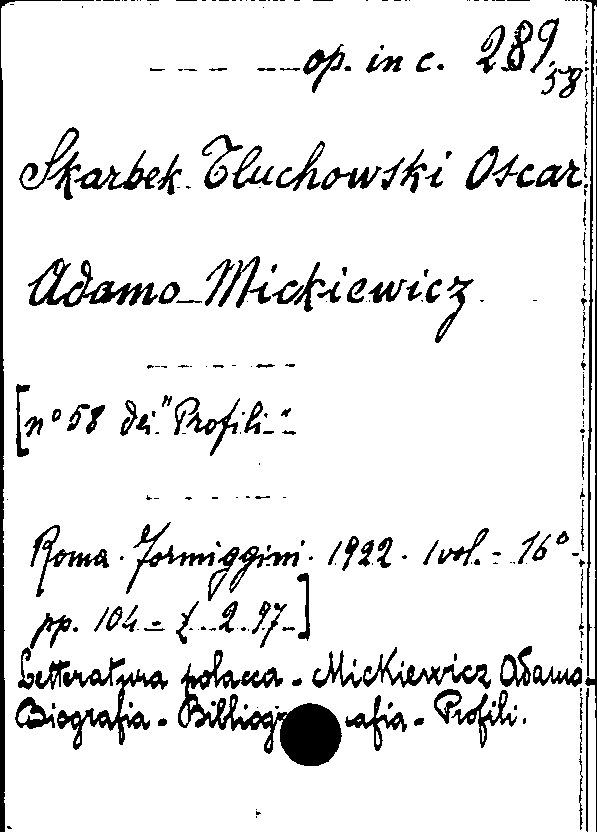 op. in c. 289/58
Skarbek Tluchowski Oscar
Adamo Mickiewicz
[n° 58 dei "Profili"
Roma. Formiggini. 1922. 1 vol. - 16° -
pp. 104 - £ 2.97]
Letteratura polacca - Mickiewicz Adamo -
Biografia - Bibliografia - Profili.